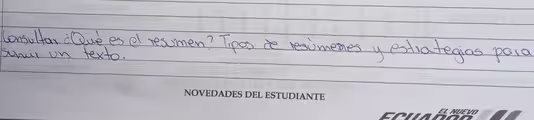 Consultar: ¿Qué es el resumen? Tipos de resúmenes y estrategias para
un texto.
NOVEDADES DEL ESTUDIANTE
EL NUEVO
ECUADOR